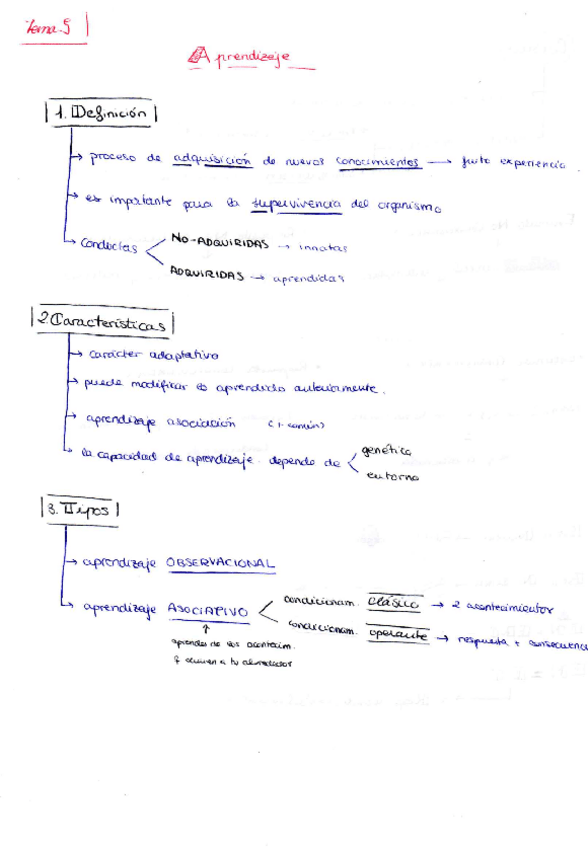 Tema.5
Aprendizaje
1. Definición
→ proceso de adquisición de nuevos conocimientos → fruto experiencia.
→ es importante para la supervivencia del organismo
→ conductas
NO-ADQUIRIDAS → innatas
ADQUIRIDAS → aprendidas
2. Características
→ carácter adaptativo
→ puede modificar lo aprendido anteriormente.
→ aprendizaje asociación (+ común)
→ la capacidad de aprendizaje depende de
genética
entorno
3. Tipos
→ aprendizaje OBSERVACIONAL
→ aprendizaje ASOCIATIVO
condicionam. clásico → 2 acontecimientos
condicionam. operante → respuesta + consecuenc
↑
aprendes de los acontecim.
q ocurren a tu alrededor